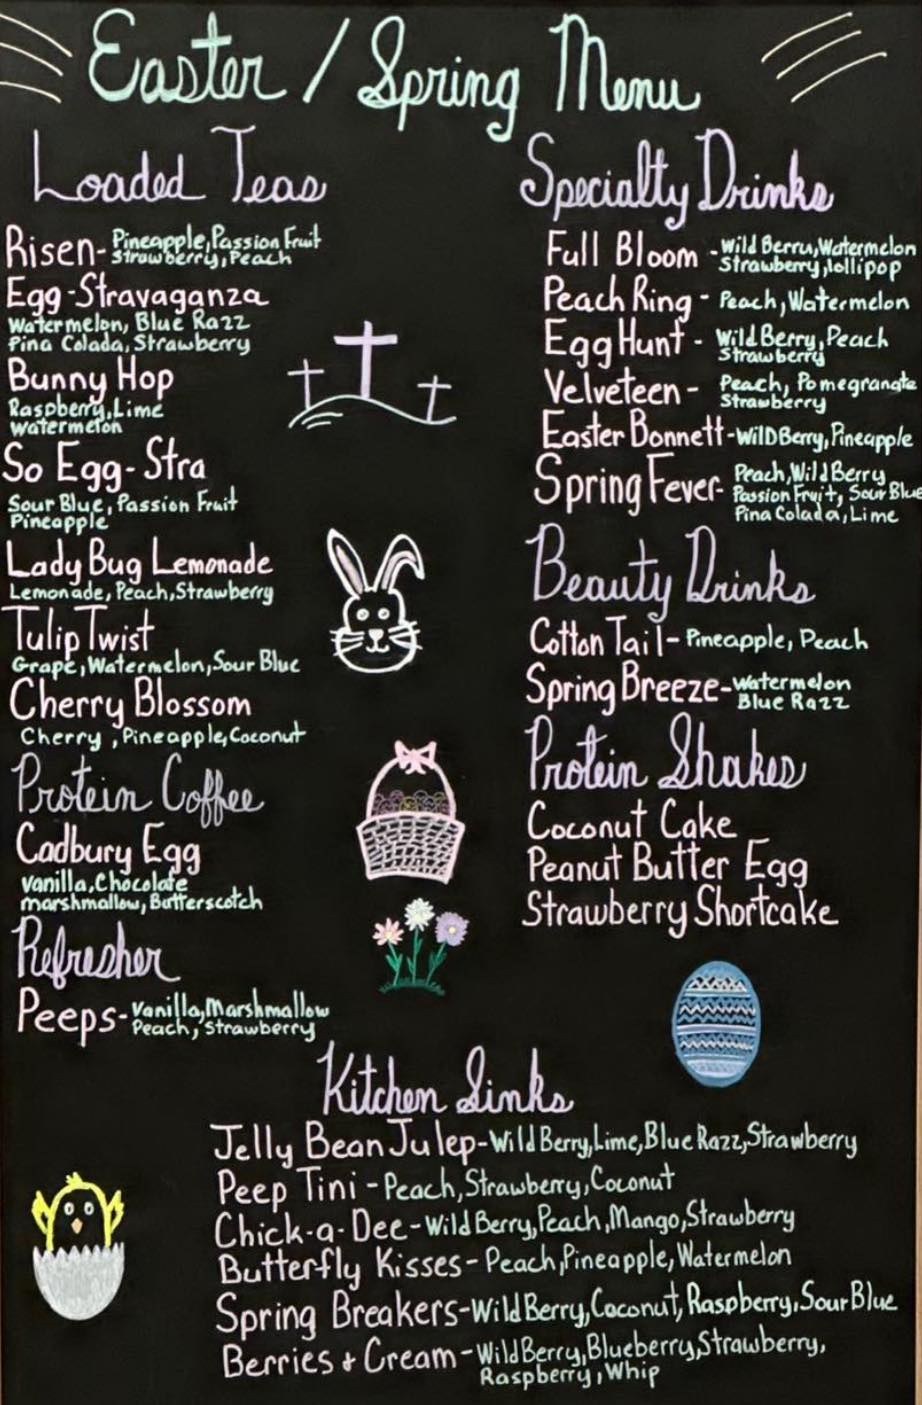 Easter / Spring Menu
Loaded Teas
Risen- Pineapple, Passion Fruit
Strawberry, Peach
Egg-Stravaganza
Watermelon, Blue Razz
Pina Colada, Strawberry
Bunny Hop
Raspberry, Lime
Watermelon
So Egg-Stra
Sour Blue, Passion Fruit
Pineapple
Lady Bug Lemonade
Lemonade, Peach, Strawberry
Tulip Twist
Grape, Watermelon, Sour Blue
Cherry Blossom
Cherry, Pineapple, Coconut
Protein Coffee
Cadbury Egg
Vanilla, Chocolate
marshmallow, Butterscotch
Refresher
Peeps- Vanilla, Marshmallow
Peach, Strawberry
Specialty Drinks
Full Bloom - Wild Berry, Watermelon
Strawberry, lollipop
Peach Ring - Peach, Watermelon
Egg Hunt - Wild Berry, Peach
Strawberry
Velveteen - Peach, Pomegranate
Strawberry
Easter Bonnett - Wild Berry, Pineapple
Spring Fever- Peach, Wild Berry
Passion Fruit, Sour Blue
Pina Colada, Lime
Beauty Drinks
Cotton Tail - Pineapple, Peach
Spring Breeze - Watermelon
Blue Razz
Protein Shakes
Coconut Cake
Peanut Butter Egg
Strawberry Shortcake
Kitchen Sinks
Jelly Bean Julep - Wild Berry, Lime, Blue Razz, Strawberry
Peep Tini - Peach, Strawberry, Coconut
Chick-a-Dee - Wild Berry, Peach, Mango, Strawberry
Butterfly Kisses - Peach, Pineapple, Watermelon
Spring Breakers - Wild Berry, Coconut, Raspberry, Sour Blue
Berries + Cream - Wild Berry, Blueberry, Strawberry,
Raspberry, Whip